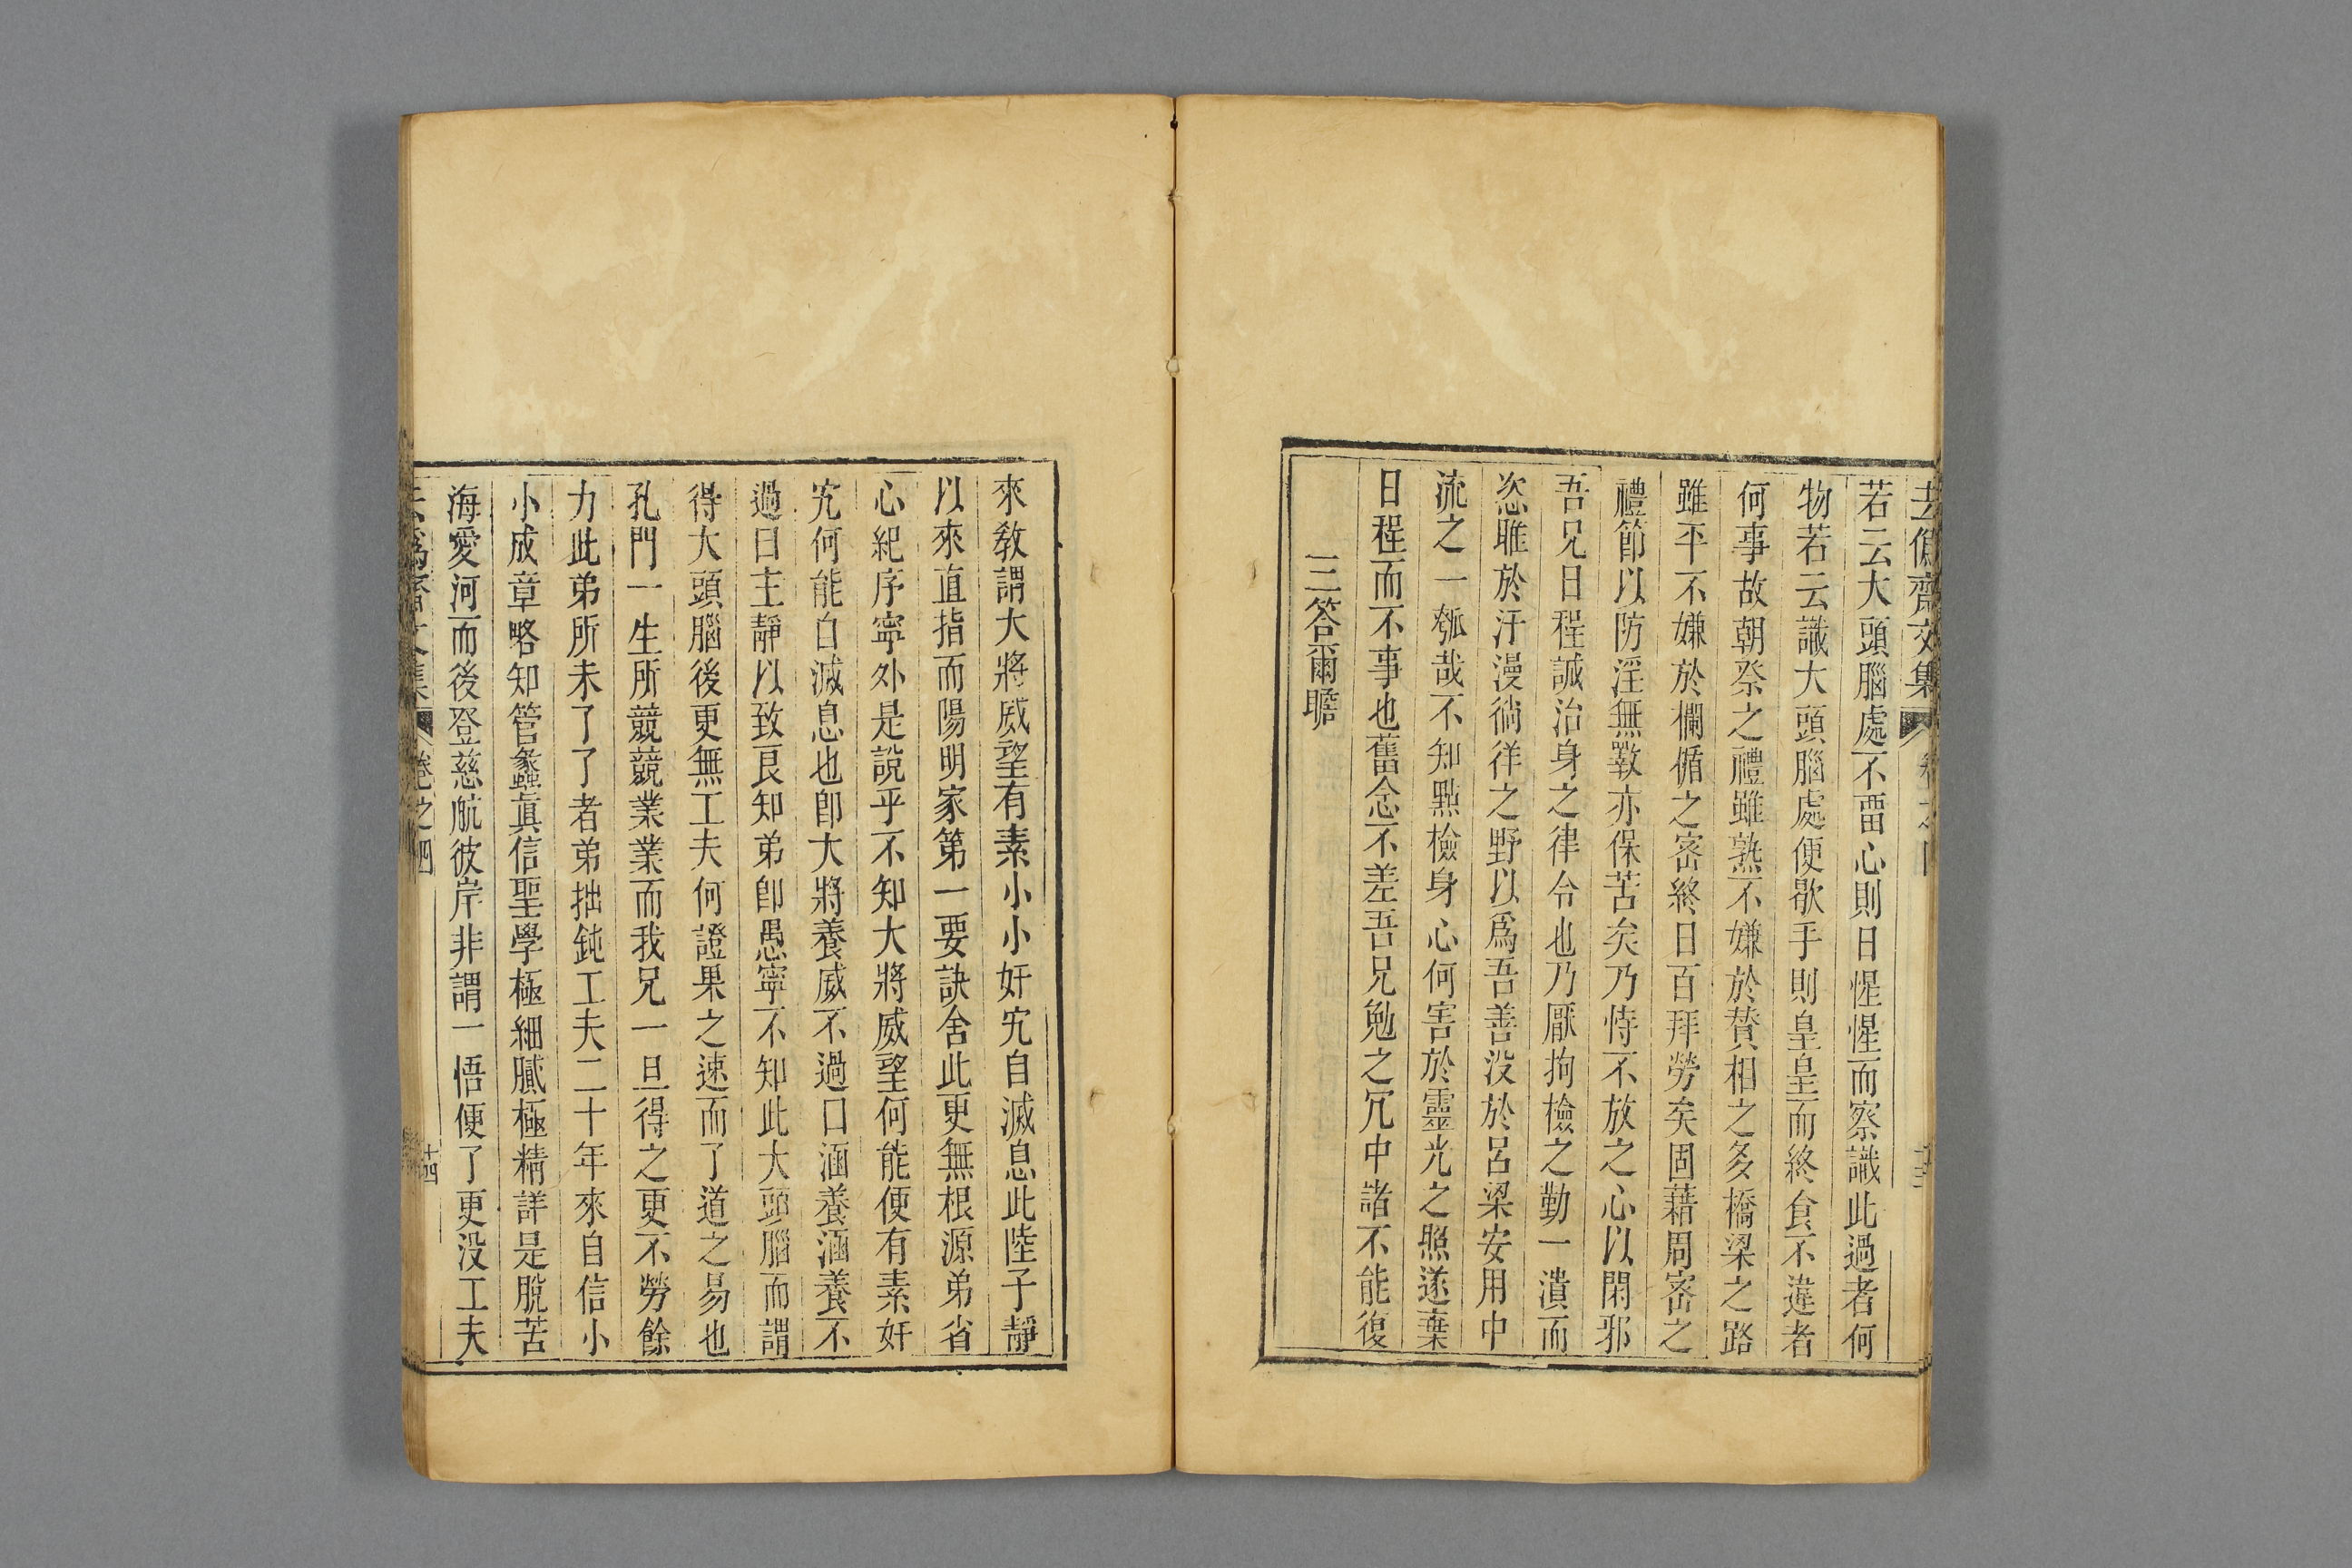 去僞齋文集 卷之四 十三
若云大頭腦處不畱心則日惺惺而察識此過者何
物若云識大頭腦處便歇手則皇皇而終食不違者
何事故朝祭之禮雖熟不嫌於賛相之多橋梁之路
雖平不嫌於欄楯之宻終日百拜勞矣固藉周宻之
禮節以防淫無斁亦保苦矣乃恃不放之心以閑邪
吾兄日程誠治身之律令也乃厭拘檢之勤一潰而
恣雎於汗漫徜徉之野以爲吾善没於呂梁安用中
流之一瓠哉不知點檢身心何害於靈光之照遂棄
日程而不事也舊念不差吾兄勉之冗中諸不能復
三答爾瞻
來敎謂大將威望有素小小奸宄自滅息此陸子靜
以來直指而陽明家第一要訣舍此更無根源弟省
心紀序寧外是說乎不知大將威望何能便有素奸
宄何能自滅息也卽大將養威不過口涵養涵養不
過曰主靜以致良知弟卽愚寧不知此大頭腦而謂
得大頭腦後更無工夫何證果之速而了道之易也
孔門一生所競競業業而我兄一旦得之更不勞餘
力此弟所未了了者弟拙鈍工夫二十年來自信小
小成章略知管蠡眞信聖學極細膩極精詳是脫苦
海愛河而後登慈航彼岸非謂一悟便了更没工夫
去僞齋文集 卷之四 十四